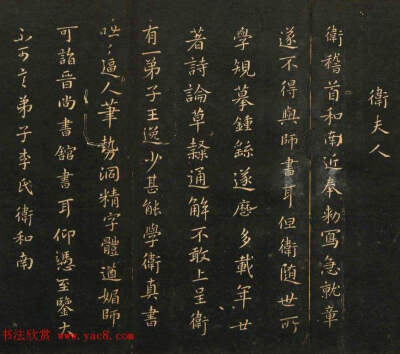 衛夫人
衛稽首和南近奉勑寫急就章
遂不得與師書耳但衛隨世所
學規摹鍾繇遂歷多載年廿
著詩論草隸通解不敢上呈衛
有一弟子王逸少甚能學衛真書
咄咄逼人筆勢洞精字體遒媚師
可詣晉尚書館書耳仰憑至鑒大
不可言弟子李氏衛和南
书法欣赏 www.yac8.com